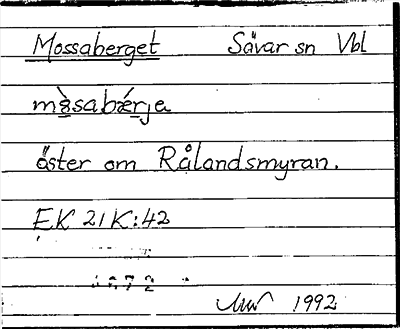 Mossaberget Sävar sn Vbl
mòsabǽrje
öster om Rålandsmyran.
EK 21K:42
1992